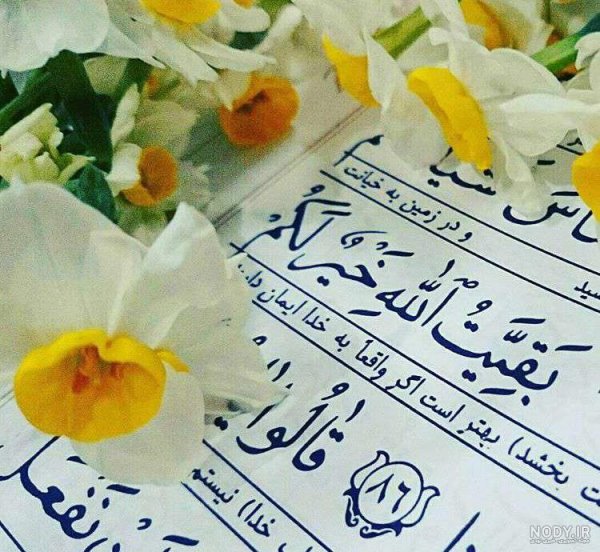 سید و در زمین به خیانت
بَقِیَّتُ اللّٰهِ خَیْرٌ لَکُمْ
بخشد) بهتر است اگر واقعاً به خدا ایمان
۸۶ قالُوا
خدا) نیستم
نَفْعَلَ
NODY.IR